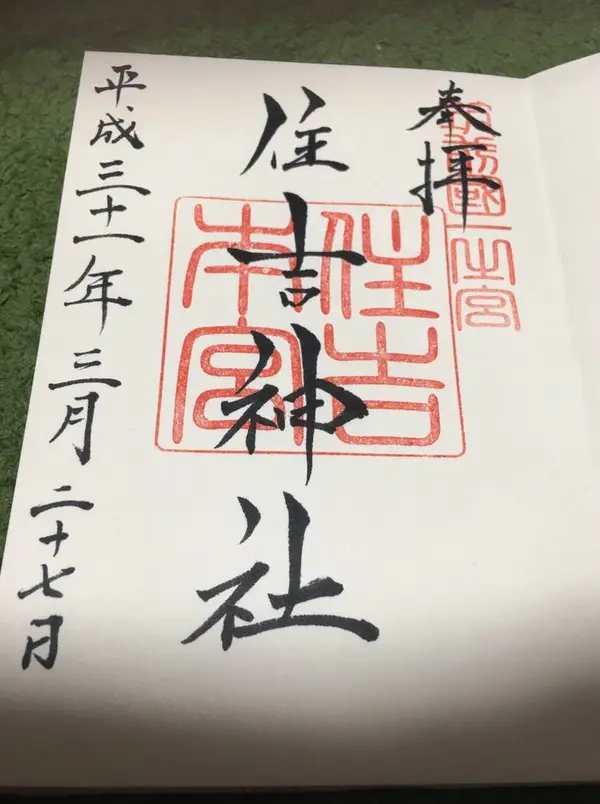 奉拝
筑前國一之宮
住吉神社
住吉
本宮
平成三十一年三月二十七日